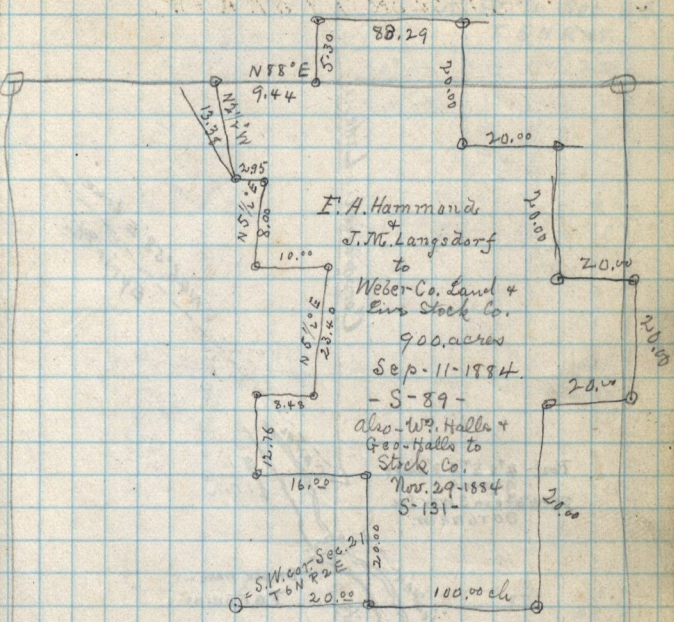 88.29
5.30
N 88° E
9.44
20.00
N 2 1/2 W
13.38
20.00
2.95
N 5 1/2° E
8.00
20.00
10.00
20.00
E. A. Hammond
&
J. M. Langsdorf
to
Weber Co. Land &
Live Stock Co.
900. acres
Sep-11-1884
-S-89-
also-Wm. Halls &
Geo-Halls to
Stock Co.
Nov. 29-1884
S-131-
N 5 1/2° E
23.40
20.00
20.00
8.48
12.76
16.00
20.00
20.00
=S.W. cor. Sec. 21
T6N R2E
20.00
100.00 ch